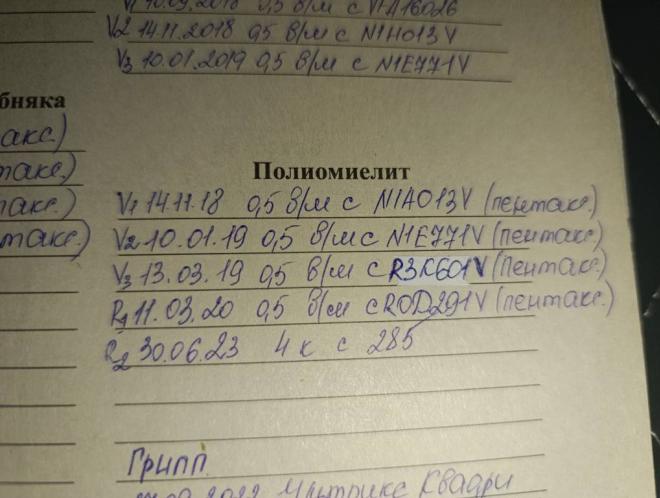 V1 10.09.2018 0,5 в/м с
V2 14.11.2018 0,5 в/м с N1H013V
V3 10.01.2019 0,5 в/м с N1E771V
бняка
акс.)
такс.)
такс.)
такс.)
Полиомиелит
V1 14.11.18 0,5 в/м с N1A013V (пентакс.)
V2 10.01.19 0,5 в/м с N1E771V (пентакс.)
V3 13.03.19 0,5 в/м с R3K601V (Пентакс.)
R1 11.03.20 0,5 в/м с R0D291V (пентакс.)
R2 30.06.23 4 к с 285
Грипп
Ультрикс Квадри